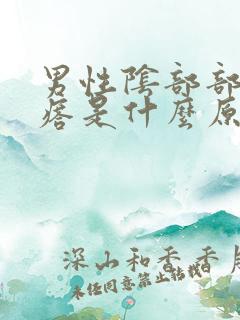 男性陰部部
痦是什麼原
深山和香香
未任同意禁止转载